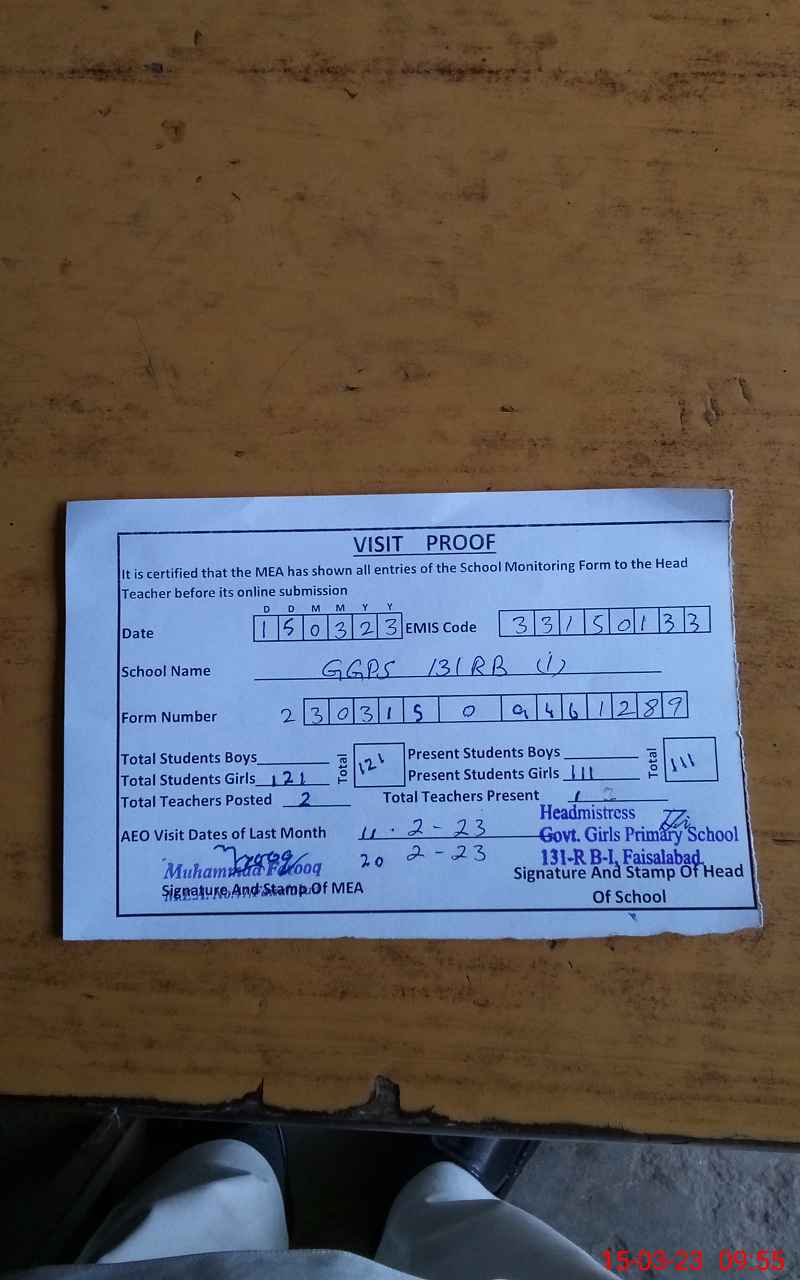 VISIT PROOF
It is certified that the MEA has shown all entries of the School Monitoring Form to the Head
Teacher before its online submission
D D M M Y Y
Date 1 5 0 3 2 3 EMIS Code 3 3 1 5 0 1 3 3
School Name GGPS 131 RB (i)
Form Number 2 3 0 3 1 5 0 9 4 6 1 2 8 9
Total Students Boys Total 121 Present Students Boys Total 111
Total Students Girls 121 Present Students Girls 111
Total Teachers Posted 2 Total Teachers Present
AEO Visit Dates of Last Month 11 - 2 - 23
20 2 - 23
Headmistress
Govt. Girls Primary School
131-R B-I, Faisalabad
Muhammad Farooq
Signature And Stamp Of MEA
Signature And Stamp Of Head
Of School
15-03-23 09:55